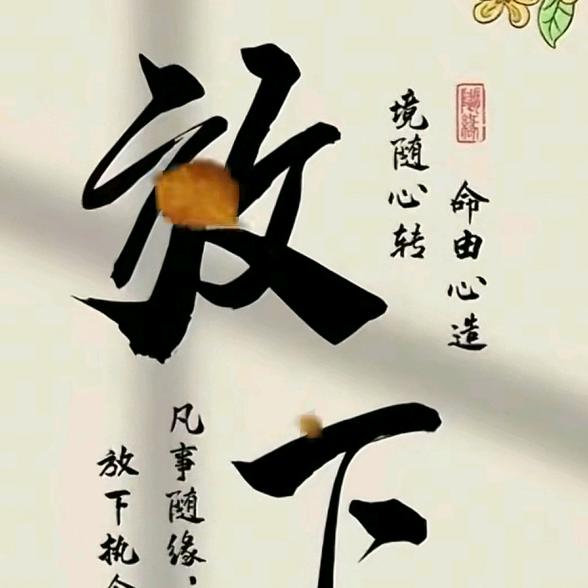 命由心造
境随心转
放下
凡事随缘，
放下执念